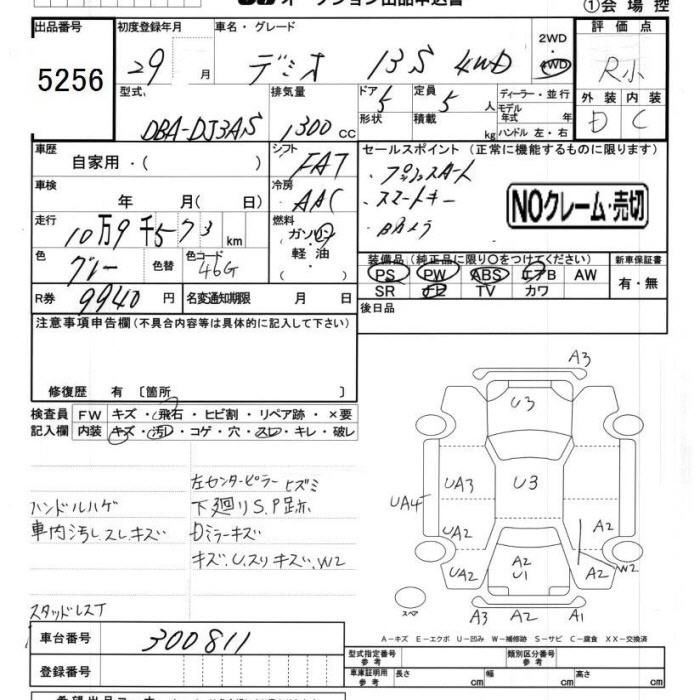 オークション出品申込書
①会場控
出品番号 初度登録年月 車名・グレード 2WD 評価点
5256 29 月 デミオ 13S 4WD 4WD R小
型式 排気量 ドア 5 定員 5 人 ディーラー・並行 外装 内装
DBA-DJ3AS 1300 CC 形状 積載 kg モデル年式 年 D C
ハンドル 左・右
車歴 自家用・( ) シフト FAT セールスポイント (正常に機能するものに限ります)
・プッシュスタート
車検 年 月( 日) 冷房 AAC ・スマートキー
・Bカメラ
NOクレーム・売切
走行 10万9千573 km 燃料 ガソリン・軽油・
色 グレー 色替 色コード 46G 装備品 (純正品に限り○をつけてください) 新車保証書
PS PW ABS エアB AW 有・無
R券 9940 円 名変通知期限 月 日 SR ナビ TV カワ
注意事項申告欄(不具合内容等は具体的に記入して下さい) 後日品
修復歴 有 〔箇所 〕
検査員 FW キズ・飛石・ヒビ割・リペア跡・×要
記入欄 内装 キズ・汚・コゲ・穴・スレ・キレ・破レ
左センターピラー ヒズミ
ハンドルハゲ 下廻りS.P足跡
車内汚し.スレ.キズ Dミラーキズ
キズ.U.スリキズ.W2
スタッドレスT
A3
U3
UA3 U3
UA4
UA2 A2
UA2 A2 U1 A2 W2
スペア
A3 A2 A1
A－キズ E－エクボ U－凹み W－補修跡 S－サビ C－腐食 XX－交換済
車台番号 300811
型式指定番号 参考 類別区分番号 参考
登録番号 車庫証明用 参考 長さ cm 幅 cm 高さ cm